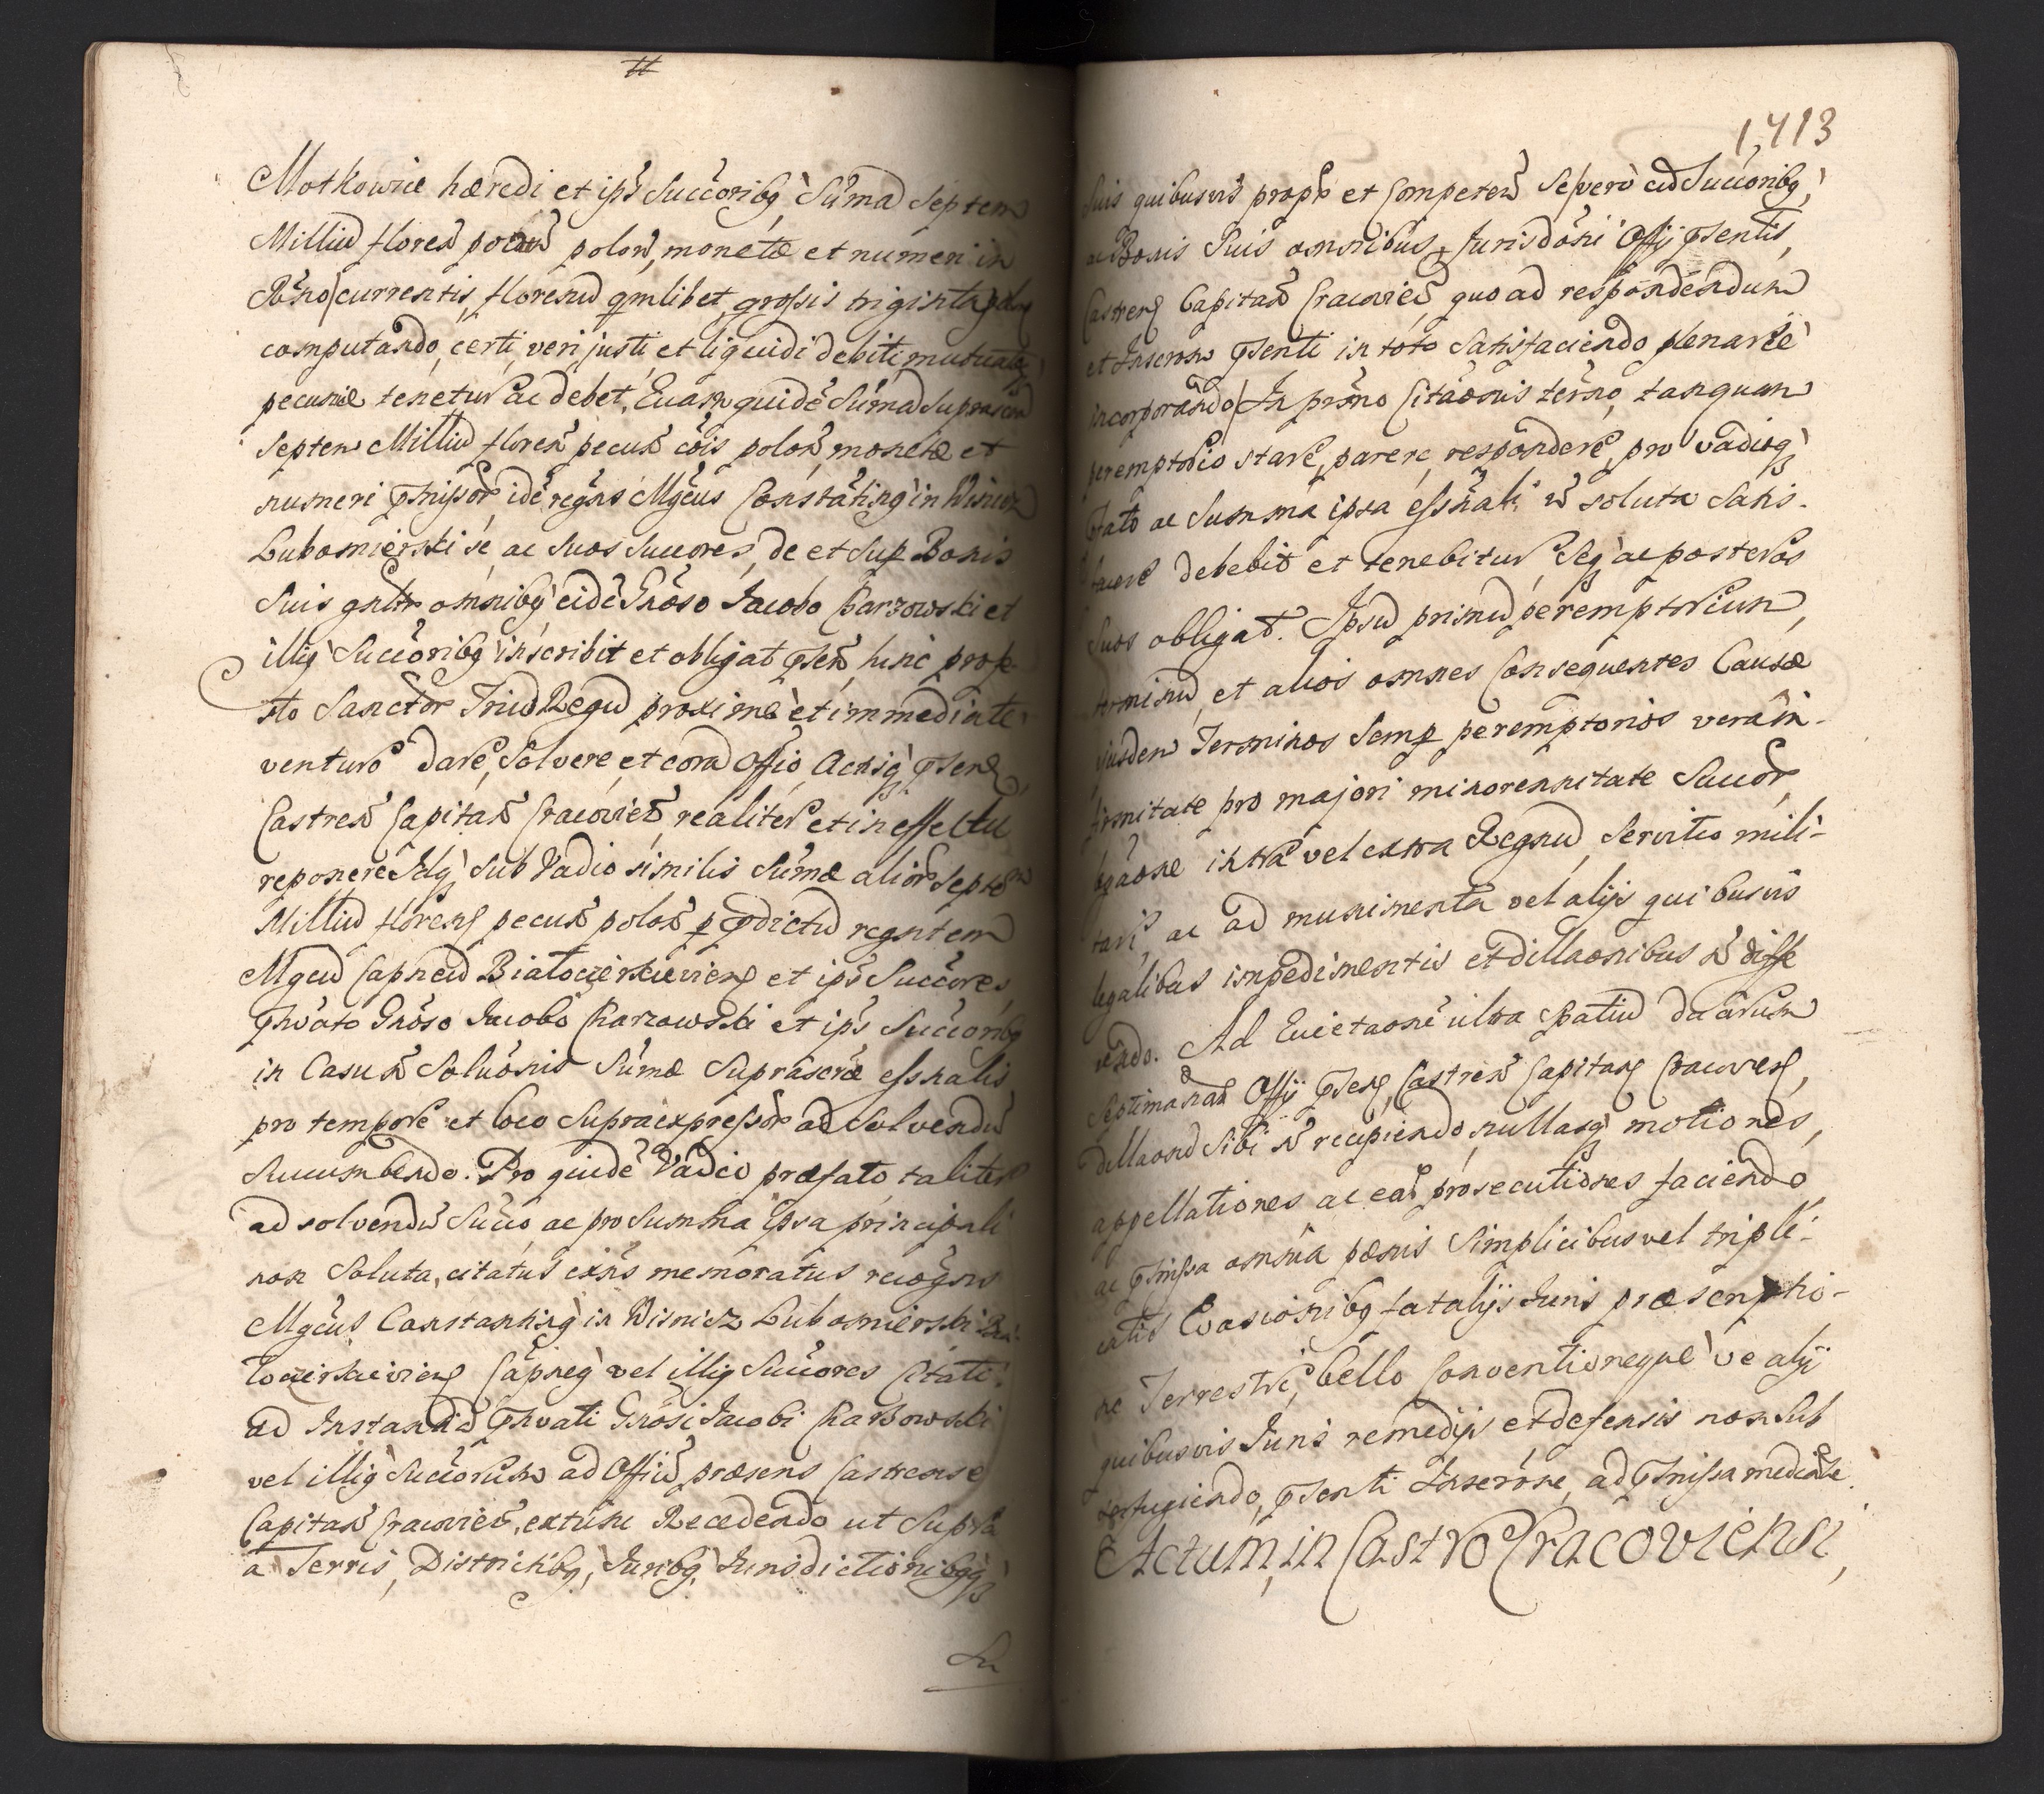 #
Motkowice hæredi et ips Succoribq Suma Septem
Milliu floren polon, monetæ et numeri in
Rgno currentis, florenu qmlibet, grossis triginta
computando, certi, veri, justi, et liquidi debiti, mutuatæ
pecuniæ tenetur ac debet, Euam quide Suma
Septem Milliu floren pecun cois polon, monetæ et
numeri pmissor, ide regns Mgcus Constating in Wisnicz
Lubomierski se, ac suos Succores, de et Sup Bonis
Suis gnltr omnibq eide Gnoso Jacobo Charzowski et
illig Succoribq inscribit et obligat psen, hinc pro fe-
sto Sanctor Triu Regu proxime et immediate
venturo dare, Solvere, et cora Offio Actisq psen
Castren Capitan Cracovien, realiter et in effectu
reponere Idq sub Vadio similis Sumæ alior Septem
Milliu floren pecun polon p pdictu regntem
Mgcu Capneu Białocierkievien et ips Succores
pnoato Gnoso Jacobo Charzowski et ips Succoribq
in Casu n Soluonis Sumæ Suprascræ essnalis
pro tempore et loco Supraexpressor ad Solvendu
Succumbendo. Pro quide Vadio præfato taliter
ad solvendu Succo, ac pro Summa ipsa principali
non Soluta, citatus exns memoratus recogns
Mgcus Constanting in Wisnicz Lubomierski Bia-
locierkievien Capneq vel illig Succores Citati
ad Instantia pnoati Gnosi Jacobi Charzowski
vel illig Succorum ad Officiu præsens Castrense
Capitan Cracovien, extunc Recedendo ut Supra
a Terris, Districtibq, Juribq, Jurisdictionibqq
Su
1,713
Suis quibusvis propr et Competen Se vero cu Succoribq,
ac Bonis Suis omnibus, Jurisdoni Offij psentis,
Castren Capitan Cracovien, quo ad respondendum
et Inscron psenti in toto Satisfaciendo plenarie
incorporando In primo Citaonis termo, tanquam
peremptorio stare, parere, respondere, pro vadioq
ptato ac Summa ipsa essnali n soluta Satis-
facere debebit et tenebitur, Seq ac posteros
Suos obligat. Ipsu primu peremptorium,
terminu, et alios omnes Consequentes Causæ
ejusdem Terminos Semp peremptorios vera in-
firmitate pro majori minorennitate Succor,
lgaone intra vel extra Regnu, Servitio mili-
tari, ac ad munimenta vel alijs quibusvis
legalibus impedimentis et dillaonibus n diffe
rendo. Ad Euictaone ultra Spatiu duarum
Septimanar Offij psen, Castren Capitan Cracovien,
dillaond Sibi n recipiendo, nullasq motiones,
appellationes ac ear prosecutiones faciendo,
ac pmissa omnia pænis Simplicibus vel tripli-
catis Evasionibq fatalijs Juris præscriptio-
ne Terrestri, bello Conventioneque ve alij
quibusvis Juris remedijs et defensis non Sub
terfugiendo, psenti Inscrone, ad pmissa mediante.
Actum, in Castro Cracoviensi,